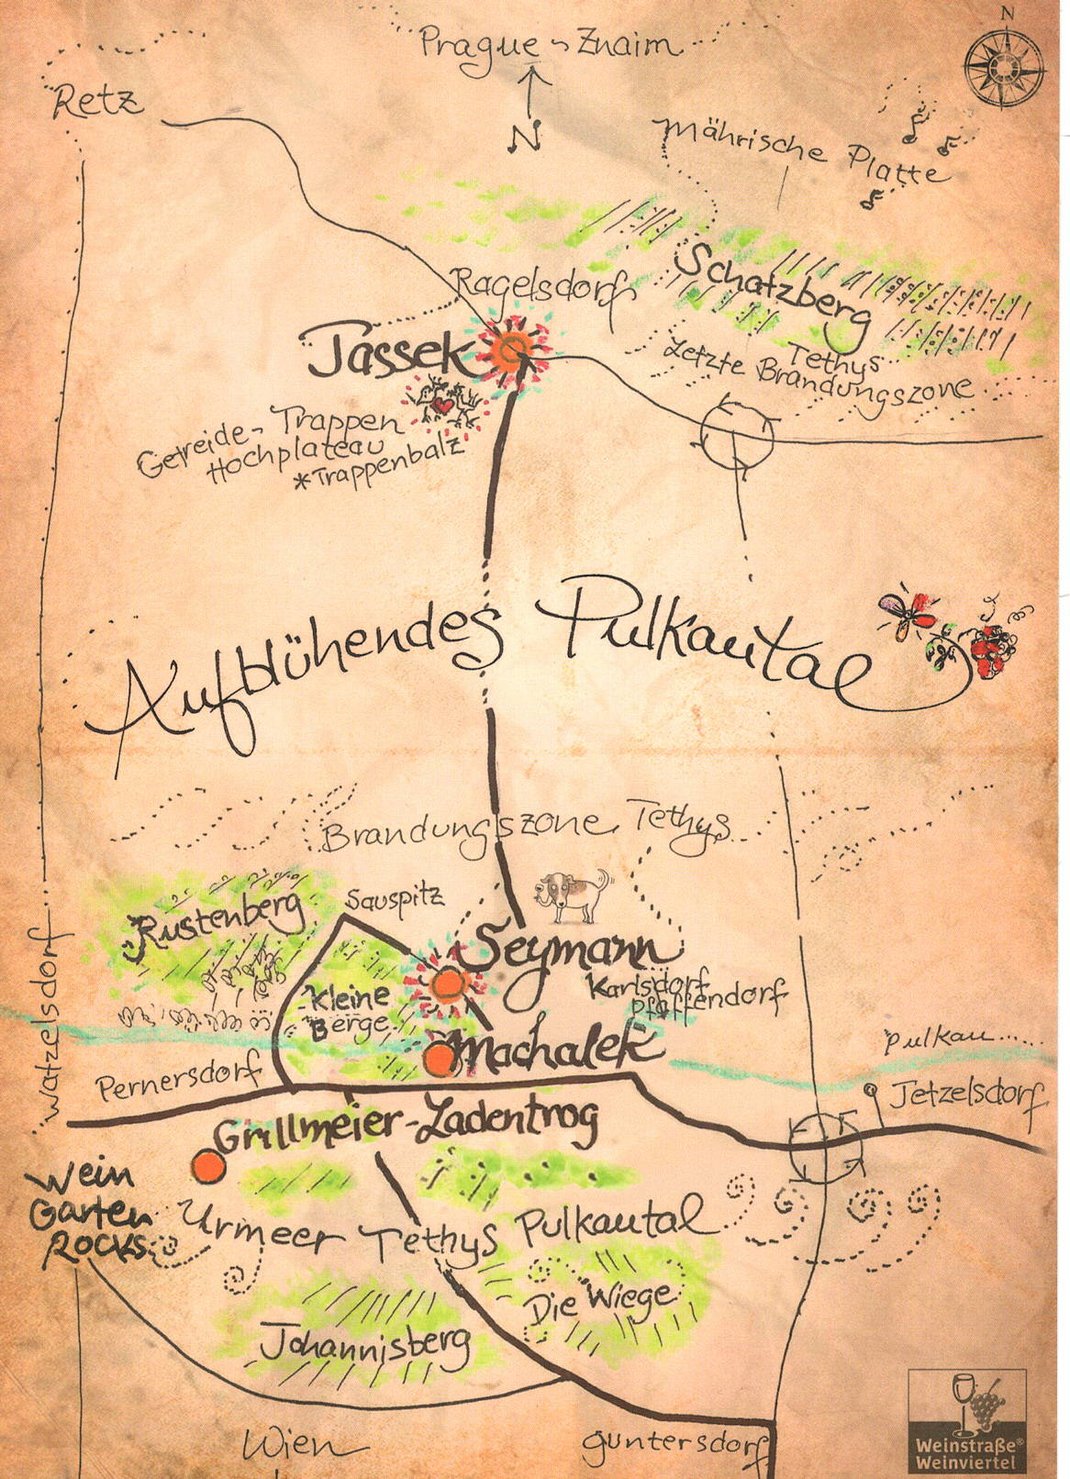 N
Prague - Znaim
N
Retz
Mährische Platte
Ragelsdorf
Schatzberg
Jassek
Tethys
Letzte Brandungszone
Getreide - Trappen
Hochplateau
*Trappenbalz
Aufblühendes Pulkautal
Brandungszone Tethys
Rustenberg
Sauspitz
Seymann
Karlsdorf
Pfaffendorf
Kleine
Berge
Machalek
Watzelsdorf
Pulkau.....
Pernersdorf
Jetzelsdorf
Grillmeier-Ladentrog
Wein
Garten
ROCKS
Urmeer Tethys Pulkautal
Die Wiege
Johannisberg
Wien
Guntersdorf
Weinstraße®
Weinviertel